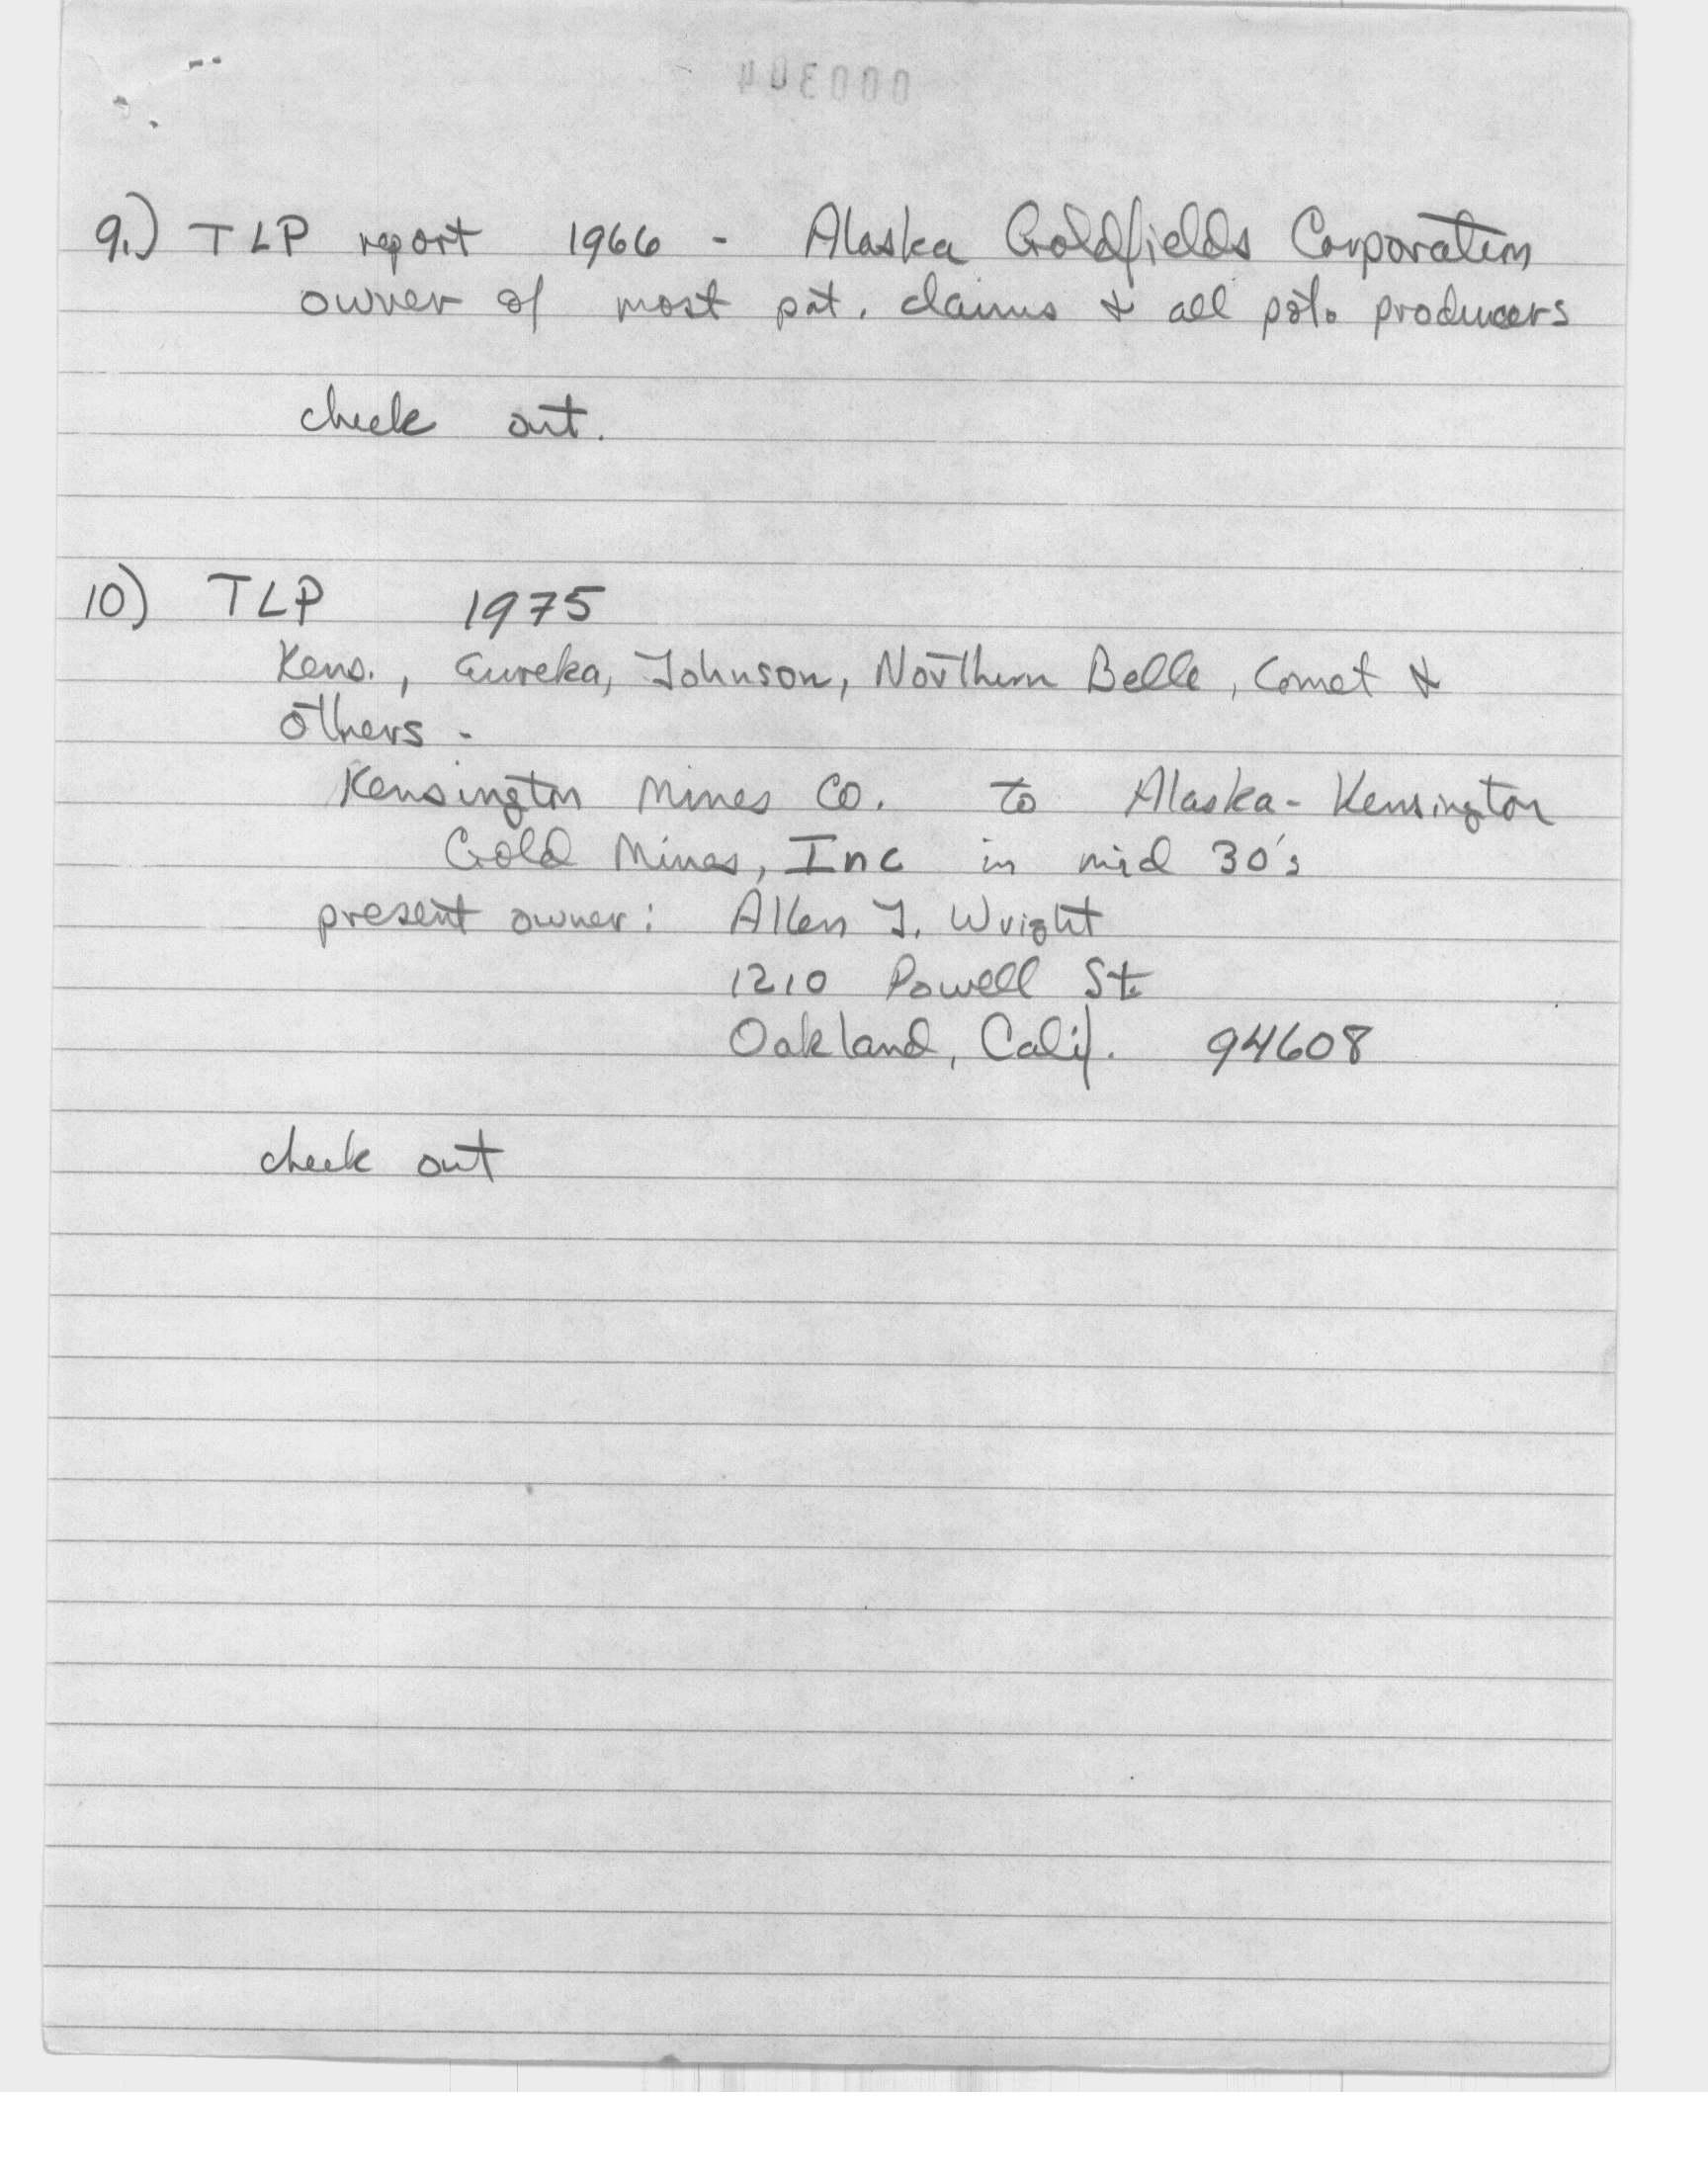 000304
9.) TLP report 1966 - Alaska Goldfields Corporation
owner of most pat. claims & all pot. producers
check out.
10) TLP 1975
Kens., Eureka, Johnson, Northern Belle, Comet &
others -
Kensington Mines Co. to Alaska-Kensington
Gold Mines, Inc in mid 30's
present owner: Allen J. Wright
1210 Powell St.
Oakland, Calif. 94608
check out